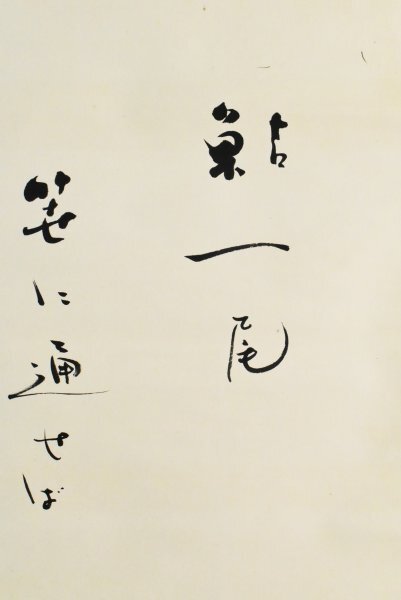 鮎一尾
笹に通せば